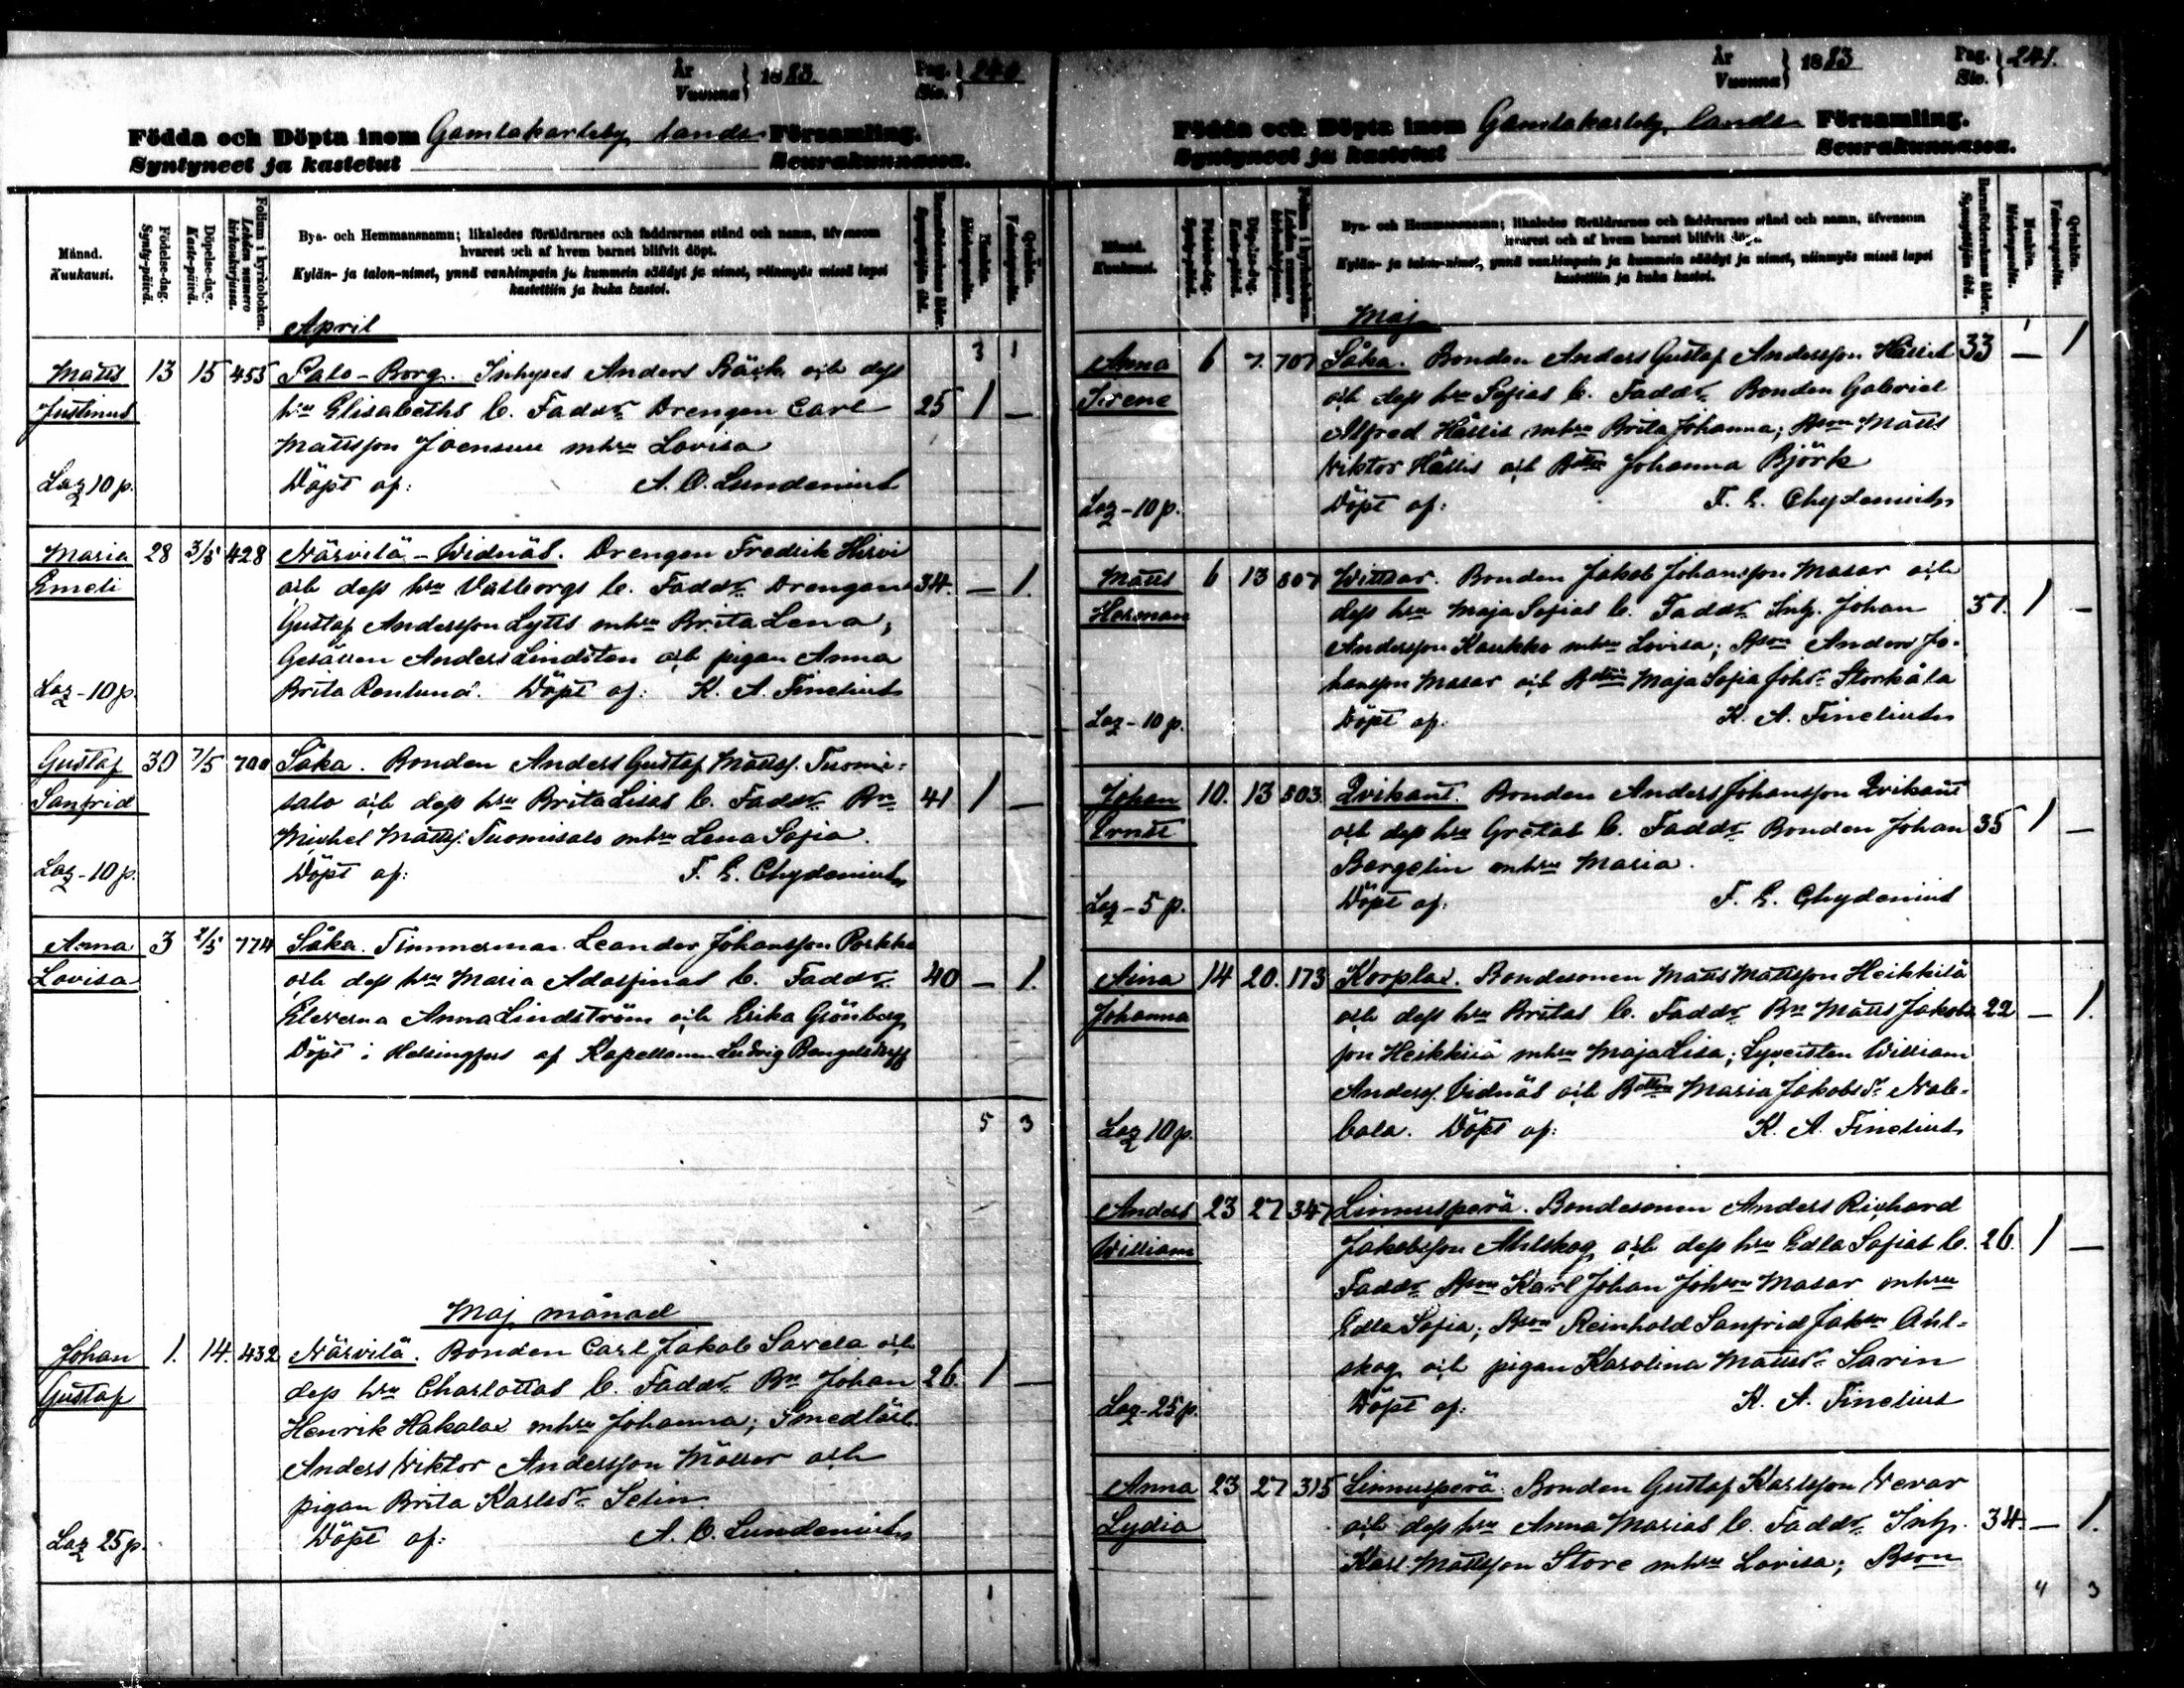 År
Vuonna
1883.
Pag.
Siv.
240
Födda och Döpta inom Gamlakarleby lands Församling.
Syntyneet ja kastetut Seurakunnassa.
Månad.
Kuukausi.
Födelse-dag.
Synty-päivä.
Döpelse-dag.
Kaste-päivä.
Folium i kyrkoboken.
Lehden numero kirkonkirjassa.
Bya- och Hemmansnamn; likaledes föräldrarnes och faddrarnes stånd och namn, äfvensom
hvarest och af hvem barnet blifvit döpt.
Kylän- ja talon-nimet, ynnä vanhimpain ja kummein säädyt ja nimet, niinmyös missä lapsi
kastettiin ja kuka kastoi.
Barnaföderskans ålder.
Synnyttäjän ikä.
Mankön.
Miehenpuolta.
Qvinkön.
Vaimonpuolta.
April
3 1
Matts 13 15 455 Palo-Borg. Inhyses Anders Bäck och dess
Justinus hru Elisabeths b. Faddr Drengen Carl 25 1 —
Mattsson Joensuu mhru Lovisa
Laz 10 p. Döpt af: A. O. Lundenius
Maria 28 3/5 428 Närvilä-Widnäs. Drengen Fredrik Hirvi
Emeli och dess hru Valborgs b. Faddr Drengen 34. — 1.
Gustaf Andersson Lytts mhru Brita Lena;
Gesällen Anders Lindsten och pigan Anna
Laz-10 p. Brita Renlund. Döpt af: K. A. Finelius
Gustaf 30 7/5 700 Såka. Bonden Anders Gustaf Mattss. Tuomi-
Sanfrid salo och dess hru Brita Lisas b. Faddr Bn 41 1 —
Michel Mattss. Tuomisalo mhru Lena Sofia.
Laz-10 p. Döpt af: F. E. Chydenius
Anna 3 2/5 774 Såka. Timmerman Leander Johansson Porkka
Lovisa och dess hru Maria Adolfinas b. Faddr 40 — 1.
Eleverna Anna Lindström och Erika Grönberg
Döpt i Helsingfors af Kapellanen Ludvig Bengelsdorff
5 3
Maj månad
Johan 1. 14. 432 Närvilä. Bonden Carl Jakob Savela och
Gustaf dess hru Charlottas b. Faddr Bn Johan 26. 1 —
Henrik Hakalax mhru Johanna; Smedlärl.
Anders Viktor Andersson Möller och
pigan Brita Karlsdr Selin
Laz 25 p. Döpt af: A. O. Lundenius
1
År
Vuonna
1883
Pag.
Siv.
241.
Födda och Döpta inom Gamlakarleby lands Församling.
Syntyneet ja kastetut Seurakunnassa.
Månad.
Kuukausi.
Födelse-dag.
Synty-päivä.
Döpelse-dag.
Kaste-päivä.
Folium i kyrkoboken.
Lehden numero kirkonkirjassa.
Bya- och Hemmansnamn; likaledes föräldrarnes och faddrarnes stånd och namn, äfvensom
hvarest och af hvem barnet blifvit döpt.
Kylän- ja talon-nimet, ynnä vanhimpain ja kummein säädyt ja nimet, niinmyös missä lapsi
kastettiin ja kuka kastoi.
Barnaföderskans ålder.
Synnyttäjän ikä.
Mankön.
Miehenpuolta.
Qvinkön.
Vaimonpuolta.
Maj
1
Anna 6 7. 707 Såka. Bonden Anders Gustaf Andersson Hällis 33 — 1
Irene och dess hru Sofias b. Faddr Bonden Gabriel
Alfred Hällis mhru Brita Johanna; Bson Matts
Viktor Hällis och Bdttr Johanna Björk
Laz-10 p. Döpt af: F. E. Chydenius
Matts 6 13 507 Wittsar. Bonden Jakob Johansson Masar och
Herman dess hru Maja Sofias b. Faddr Inh. Johan 37. 1 —
Andersson Kaukko mhru Lovisa; Bson Anders Jo-
hansson Masar och Bdttr Maja Sofia Johdr Storkåla
Laz-10 p. Döpt af. K. A. Finelius
Johan 10. 13 503. Qvikant. Bonden Anders Johansson Qvikant
Ernst och dess hru Gretas b. Faddr Bonden Johan 35 1 —
Bergelin mhru Maria.
Laz-5 p. Döpt af. F. E. Chydenius
Aina 14 20. 173 Korplax. Bondesonen Matts Mattsson Heikkilä
Johanna och dess hru Britas b. Faddr Bn Matts Jakobs 22 — 1.
son Heikkilä mhru Maja Lisa; William
Anderss. Vidnäs och Bdttr Maria Jakobsdr Nab-
Laz 10 p. bala. Döpt af: K. A. Finelius
Anders 23 27 347 Linnusperä. Bondesonen Anders Richard
William Jakobsson Ahlskog och dess hru Edla Sofias b. 26. 1 —
Faddr Bson Karl Johan Johson Masar mhru
Edla Sofia; Bson Reinhold Sanfrid Jakson Ahl-
skog och pigan Karolina Mattsdr Sarin
Laz-25 p. Döpt af: K. A. Finelius
Anna 23 27 315 Linnusperä. Bonden Gustaf Karlsson Wevar
Lydia och dess hru Anna Marias b. Faddr Inh. 34. — 1.
Karl Mattsson Store mhru Lovisa; Bson
4 3